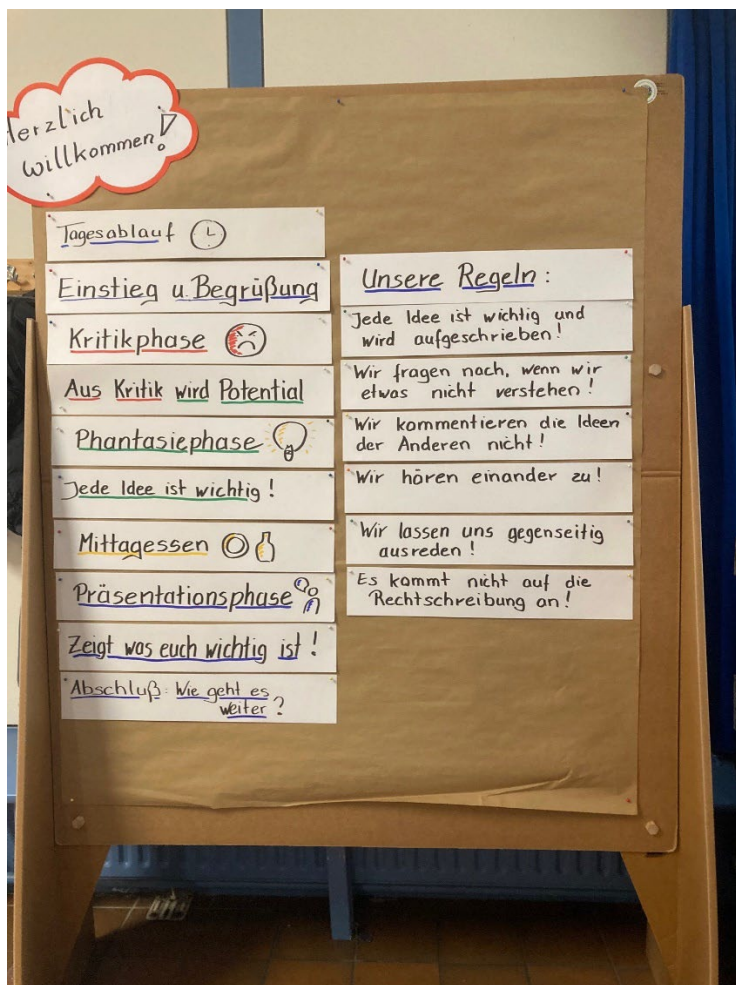 Herzlich
willkommen!
Tagesablauf
Einstieg u. Begrüßung
Kritikphase
Aus Kritik wird Potential
Phantasiephase
Jede Idee ist wichtig!
Mittagessen
Präsentationsphase
Zeigt was euch wichtig ist!
Abschluß: Wie geht es
weiter?
Unsere Regeln:
Jede Idee ist wichtig und
wird aufgeschrieben!
Wir fragen nach, wenn wir
etwas nicht verstehen!
Wir kommentieren die Ideen
der Anderen nicht!
Wir hören einander zu!
Wir lassen uns gegenseitig
ausreden!
Es kommt nicht auf die
Rechtschreibung an!